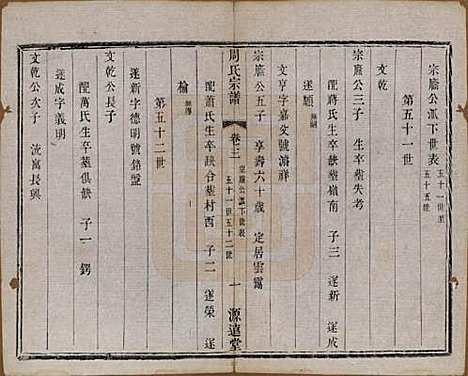 宗牕公派下世表 五十一世至五十五世
第五十一世
文乾
宗牕公三子 生卒葬失考
配蔣氏生卒缺葬嶺南 子三 遂新 遂成
遂願 無嗣
文亨字嘉文號瀚祥
宗牕公五子 享壽六十歲 定居雲靄
周氏宗譜 卷三 宗牕公派下世表 五十一世五十二世 一 源遠堂
配蕭氏生卒缺合葬村西 子二 遂榮 遂
榆 無傳
第五十二世
遂新字德明號錦盤
文乾公長子
配萬氏生卒葬俱缺 子一 鍔
遂成字義明
文乾公次子 流寓長興